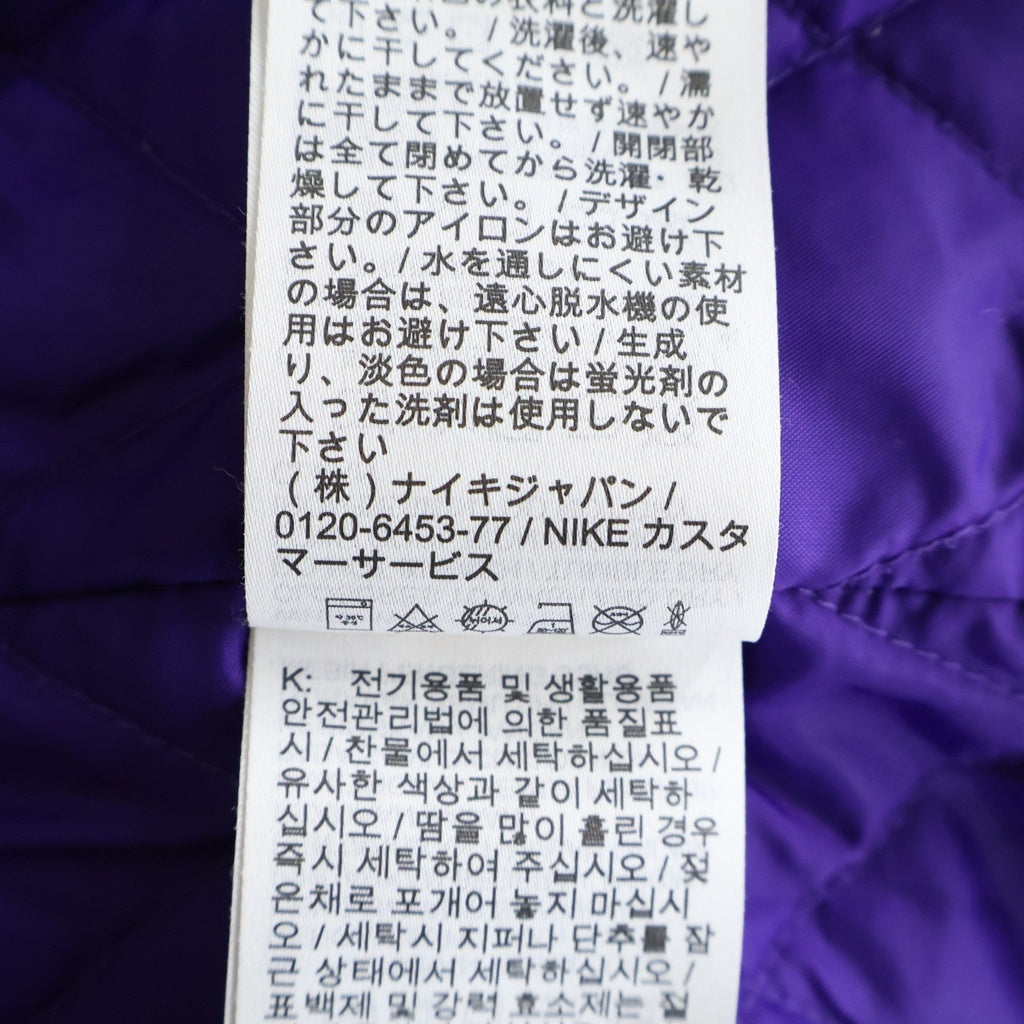 の衣料と洗濯し
て下さい。/ 洗濯後、速や
かに干してください。/ 濡
れたままで放置せず速やか
に干して下さい。/ 開閉部
は全て閉めてから洗濯・乾
燥して下さい。/ デザイン
部分のアイロンはお避け下
さい。/ 水を通しにくい素材
の場合は、遠心脱水機の使
用はお避け下さい / 生成
り、淡色の場合は蛍光剤の
入った洗剤は使用しないで
下さい
(株) ナイキジャパン /
0120-6453-77 / NIKE カスタ
マーサービス
K: 전기용품 및 생활용품
안전관리법에 의한 품질표
시 / 찬물에서 세탁하십시오 /
유사한 색상과 같이 세탁하
십시오 / 땀을 많이 흘린 경우
즉시 세탁하여 주십시오 / 젖
은채로 포개어 놓지 마십시
오 / 세탁시 지퍼나 단추를 잠
근 상태에서 세탁하십시오 /
표백제 및 강력 효소제는 절